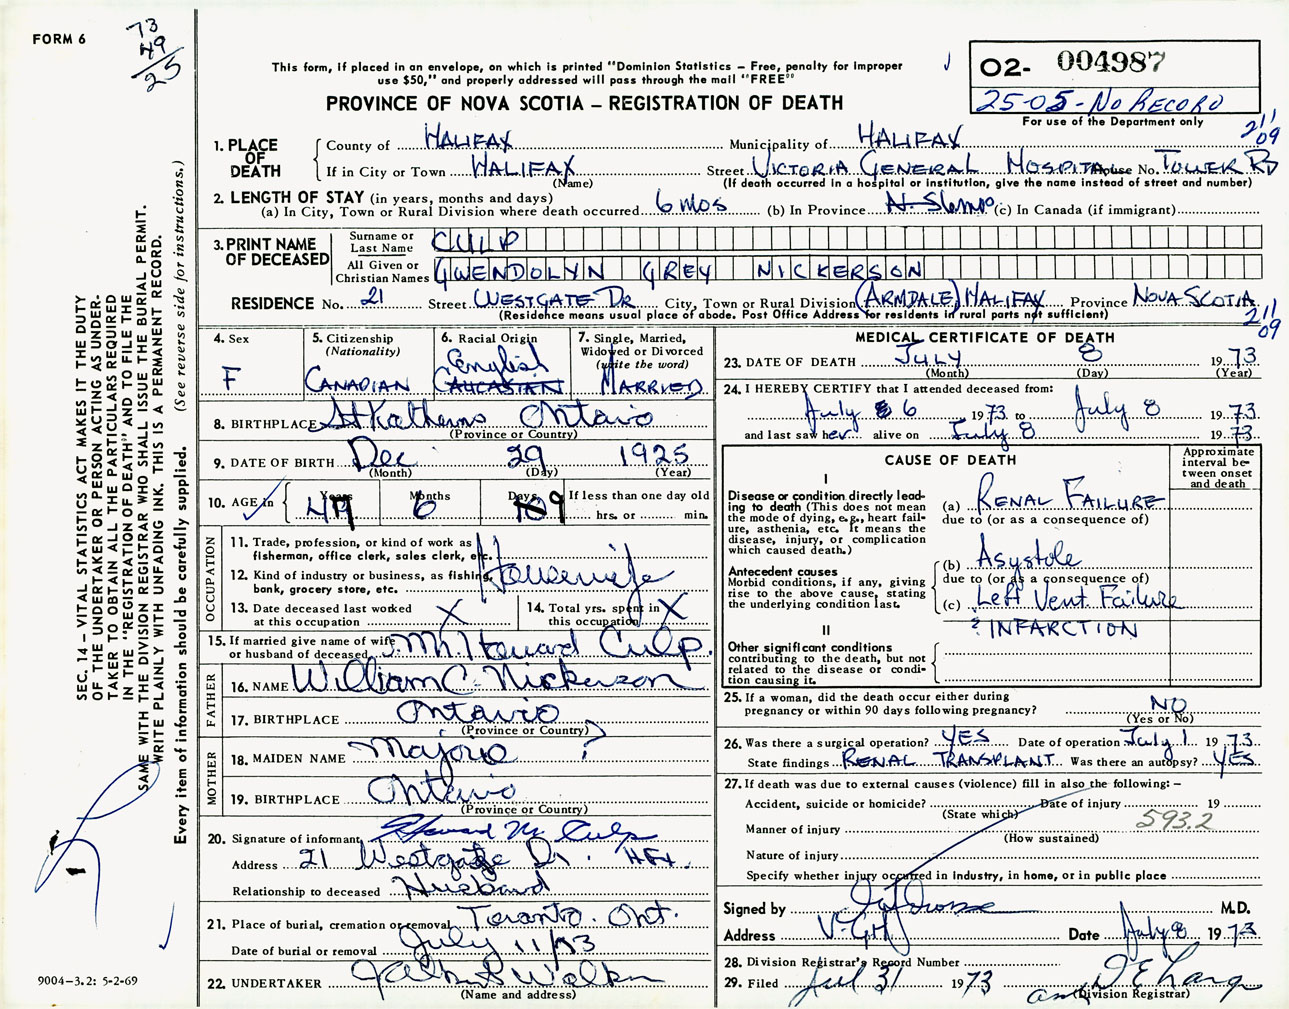 FORM 6
73
49
25
This form, if placed in an envelope, on which is printed "Dominion Statistics – Free, penalty for improper
use $50," and properly addressed will pass through the mail "FREE"
PROVINCE OF NOVA SCOTIA – REGISTRATION OF DEATH
O2- 004987
25-05 - NO RECORD
For use of the Department only
211
09
1. PLACE OF DEATH
County of HALIFAX Municipality of HALIFAX
If in City or Town HALIFAX Street VICTORIA GENERAL HOSPITAL House No. TOWER RD
(Name) (If death occurred in a hospital or institution, give the name instead of street and number)
2. LENGTH OF STAY (in years, months and days)
(a) In City, Town or Rural Division where death occurred 6 mos (b) In Province (c) In Canada (if immigrant)
3. PRINT NAME OF DECEASED
Surname or Last Name CULP
All Given or Christian Names GWENDOLYN GREY NICKERSON
RESIDENCE No. 21 Street WESTGATE DR City, Town or Rural Division (ARMDALE) HALIFAX Province NOVA SCOTIA
(Residence means usual place of abode. Post Office Address for residents in rural parts not sufficient)
211
09
4. Sex
F
5. Citizenship
(Nationality)
CANADIAN
6. Racial Origin
English
CAUCASIAN
7. Single, Married,
Widowed or Divorced
(write the word)
MARRIED
8. BIRTHPLACE St Katherns Ontario
(Province or Country)
9. DATE OF BIRTH Dec 29 1925
(Month) (Day) (Year)
10. AGE in Years 47 Months 6 Days 9 If less than one day old
hrs. or min.
OCCUPATION
11. Trade, profession, or kind of work as
fisherman, office clerk, sales clerk, etc.
Housewife
12. Kind of industry or business, as fishing,
bank, grocery store, etc.
13. Date deceased last worked
at this occupation X
14. Total yrs. spent in
this occupation X
15. If married give name of wife
or husband of deceased Mr. Howard Culp.
FATHER
16. NAME William C. Nickerson
17. BIRTHPLACE Ontario
(Province or Country)
MOTHER
18. MAIDEN NAME Majorie ?
19. BIRTHPLACE Ontario
(Province or Country)
20. Signature of informant Howard M. Culp
Address 21 Westgate Dr. Hfx.
Relationship to deceased Husband
21. Place of burial, cremation or removal Toronto. Ont.
Date of burial or removal July 11/73
22. UNDERTAKER
(Name and address)
MEDICAL CERTIFICATE OF DEATH
23. DATE OF DEATH JULY 8 1973
(Month) (Day) (Year)
24. I HEREBY CERTIFY that I attended deceased from:
July 6 1973 to July 8 1973
and last saw her alive on July 8 1973
CAUSE OF DEATH
Approximate
interval be-
tween onset
and death
I
Disease or condition directly lead-
ing to death (This does not mean
the mode of dying, e.g., heart fail-
ure, asthenia, etc. It means the
disease, injury, or complication
which caused death.)
(a) RENAL FAILURE
due to (or as a consequence of)
Antecedent causes
Morbid conditions, if any, giving
rise to the above cause, stating
the underlying condition last.
(b) Asystole
due to (or as a consequence of)
(c) Left Vent. Failure
? INFARCTION
II
Other significant conditions
contributing to the death, but not
related to the disease or condi-
tion causing it.
25. If a woman, did the death occur either during
pregnancy or within 90 days following pregnancy? NO
(Yes or No)
26. Was there a surgical operation? YES Date of operation July 1 1973
State findings RENAL TRANSPLANT Was there an autopsy? YES
27. If death was due to external causes (violence) fill in also the following: –
Accident, suicide or homicide? Date of injury 19
(State which)
Manner of injury 593.2
(How sustained)
Nature of injury
Specify whether injury occurred in industry, in home, or in public place
Signed by M.D.
Address V.G.H. Date July 8 1973
28. Division Registrar's Record Number
29. Filed Jul 31 1973
(Division Registrar)
SEC. 14 – VITAL STATISTICS ACT MAKES IT THE DUTY
OF THE UNDERTAKER OR PERSON ACTING AS UNDER-
TAKER TO OBTAIN ALL THE PARTICULARS REQUIRED
IN THE "REGISTRATION OF DEATH" AND TO FILE THE
SAME WITH THE DIVISION REGISTRAR WHO SHALL ISSUE THE BURIAL PERMIT.
WRITE PLAINLY WITH UNFADING INK. THIS IS A PERMANENT RECORD.
Every item of information should be carefully supplied. (See reverse side for instructions.)
9004-3.2: 5-2-69